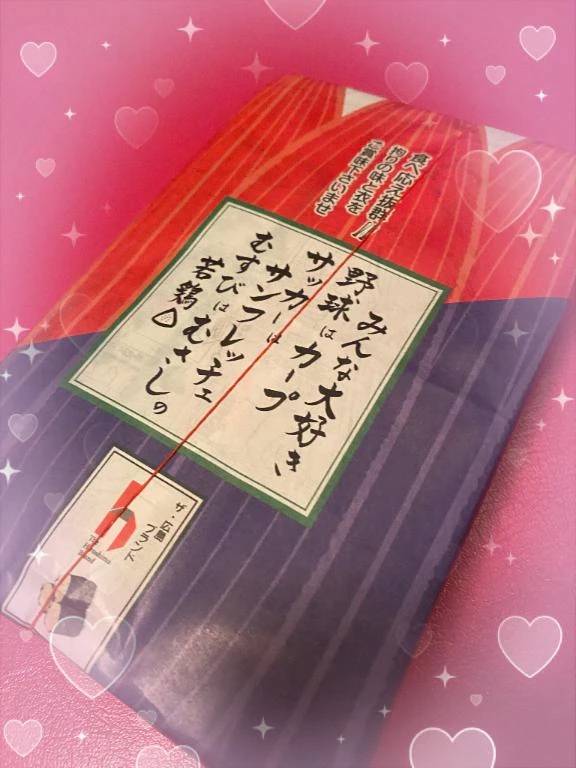 食べ応え抜群!!
拘りの味と衣を
ご賞味下さいませ
みんな大好き
野球はカープ
サッカーは
サンフレッチェ
むすびはむさしの
若鶏
ザ・広島
ブランド
The
Hiroshima
Brand